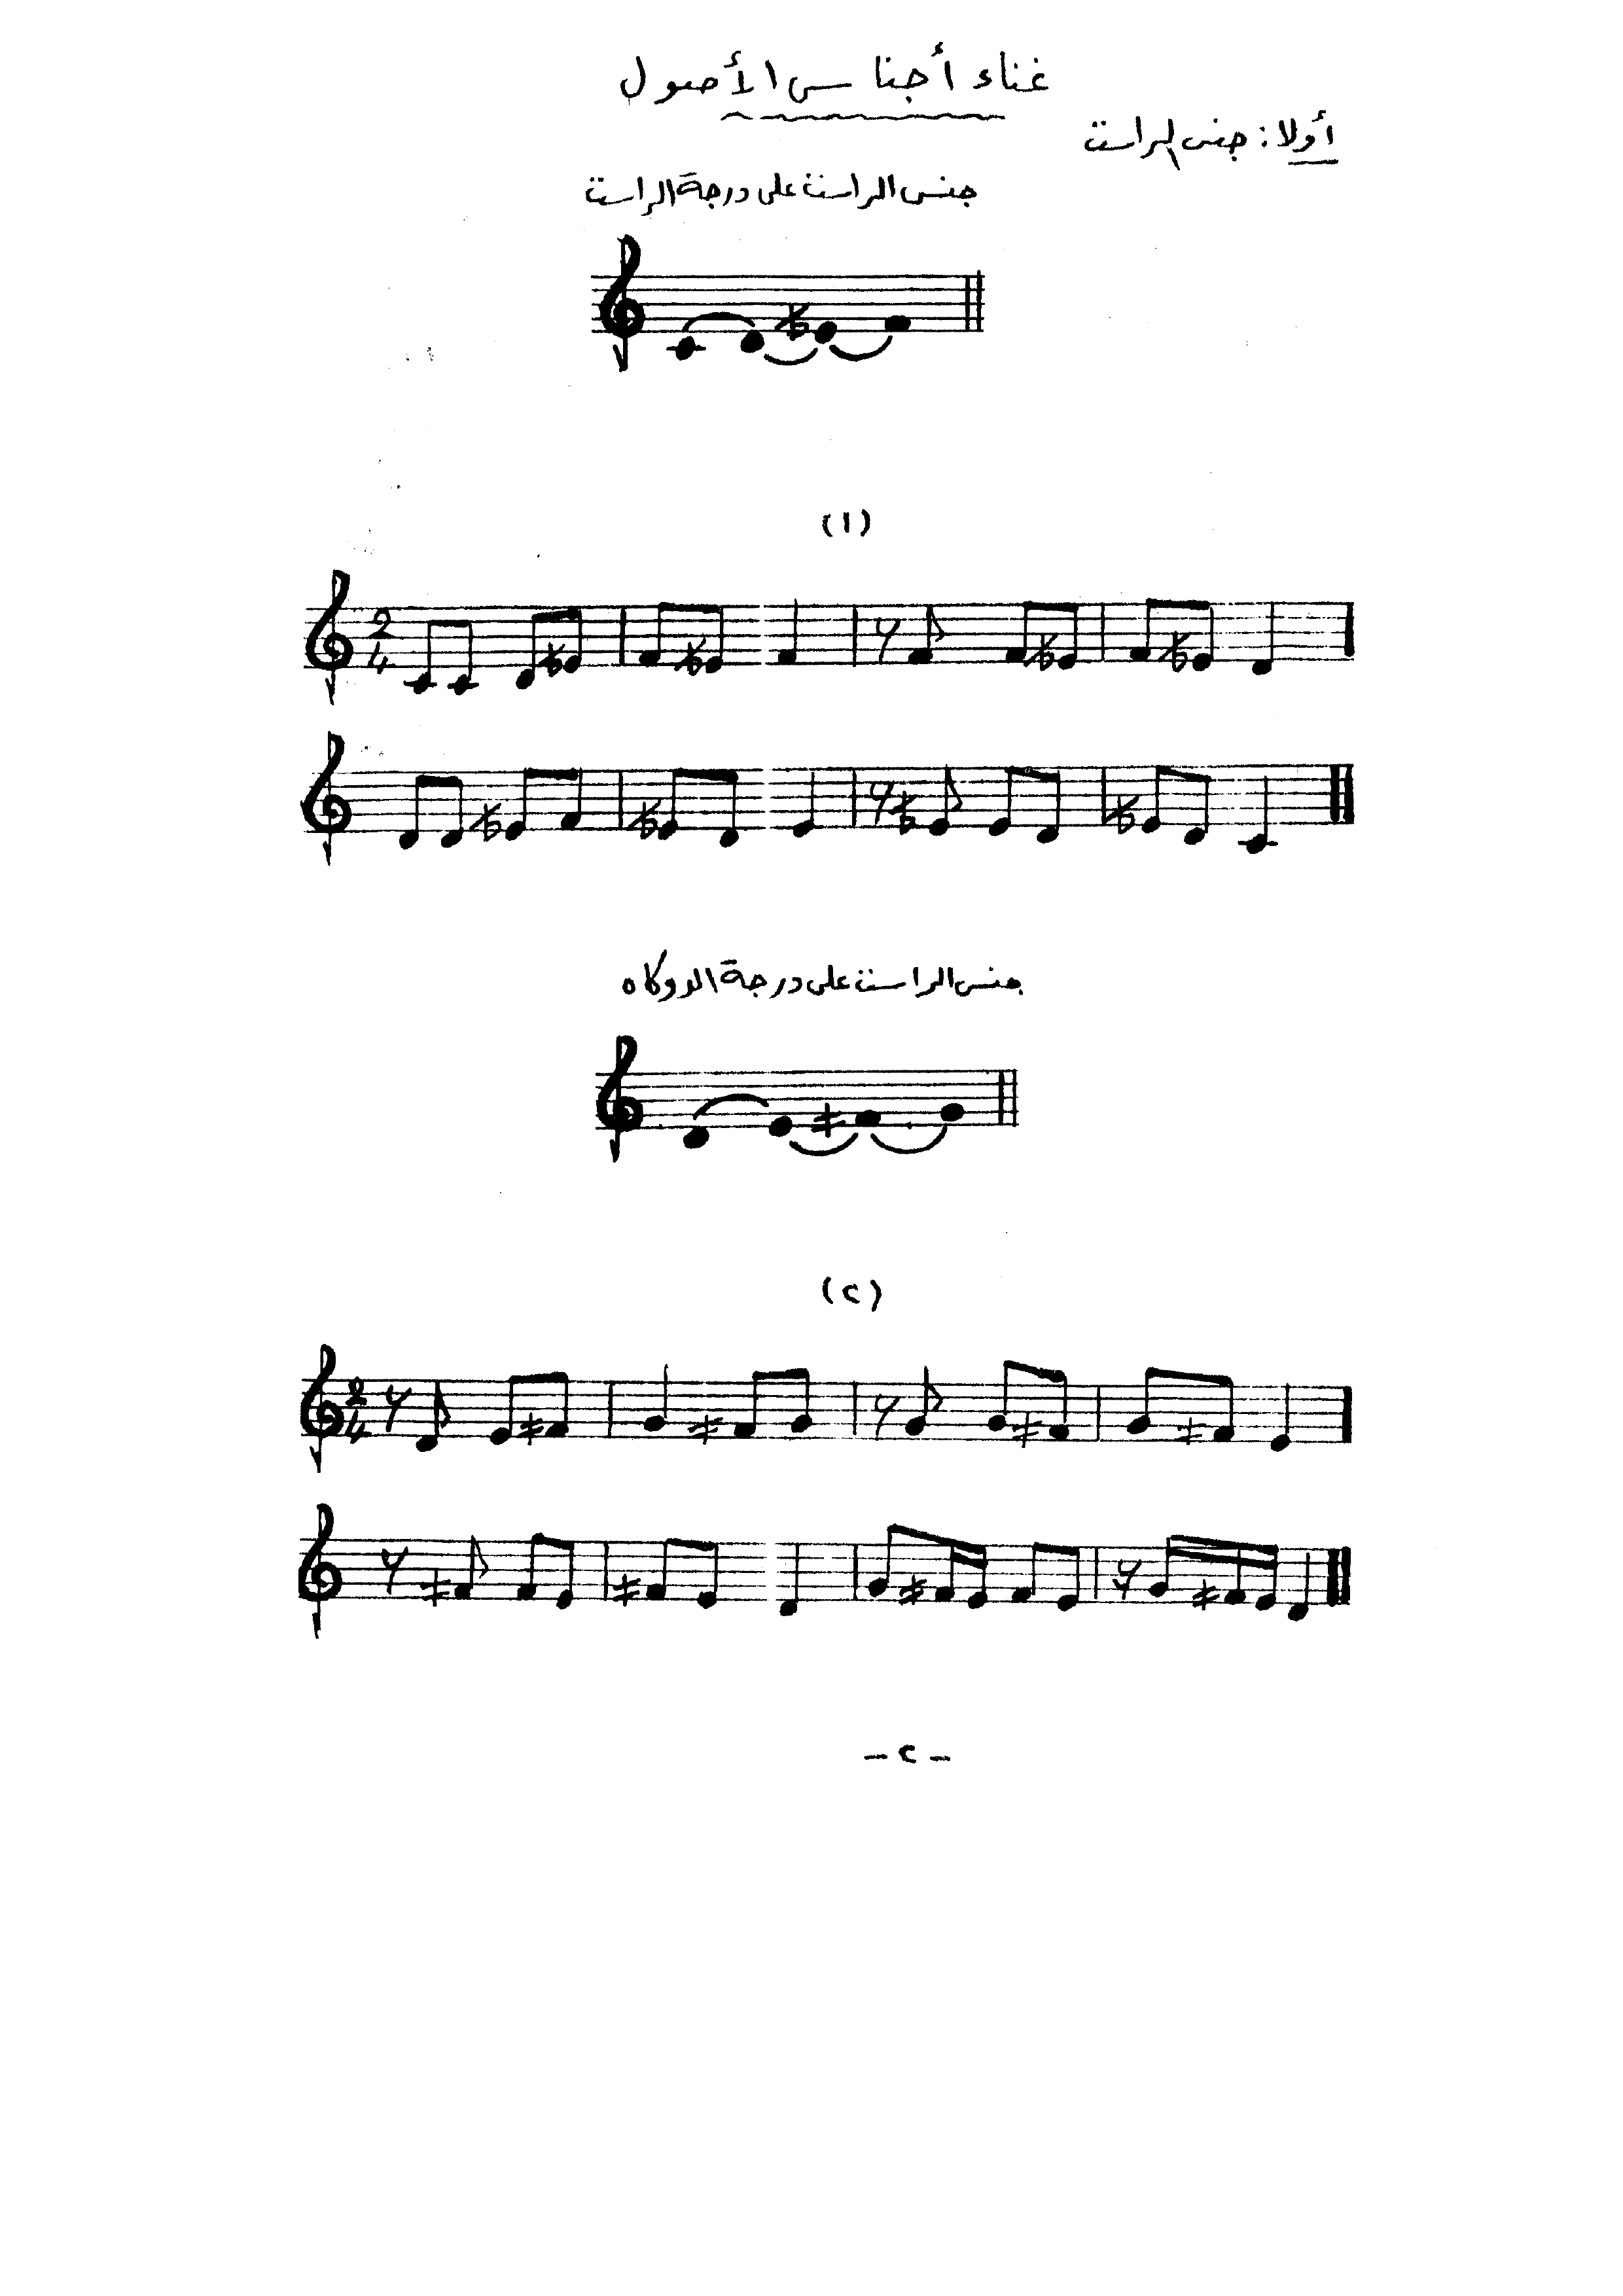 غناء أجناس الأصول
أولا: جنس الراست
جنس الراست على درجة الراست
(١)
2
4
جنس الراست على درجة الدوكاه
(٢)
2
4
- ٢ -